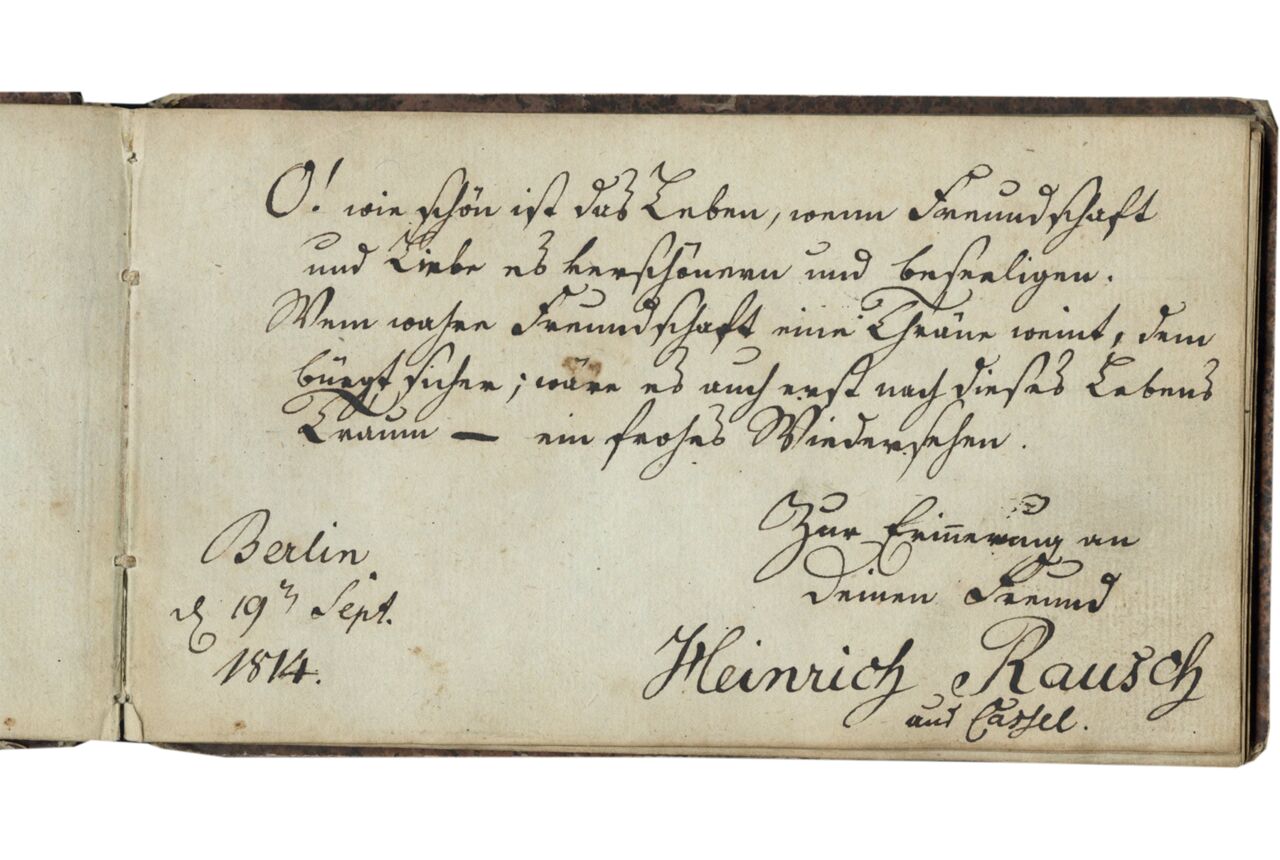 O! wie schön ist das Leben, wenn Freundschaft
und Liebe es verschönern und beseeligen.
Wem wahre Freundschaft eine Thräne weint, dem
bürgt sicher; wäre es auch erst nach dieses Lebens
Traum — ein frohes Wiedersehen.
Zur Erinnerung an
Deinen Freund
Heinrich Rausch
aus Cassel.
Berlin
d 19n Sept.
1814.